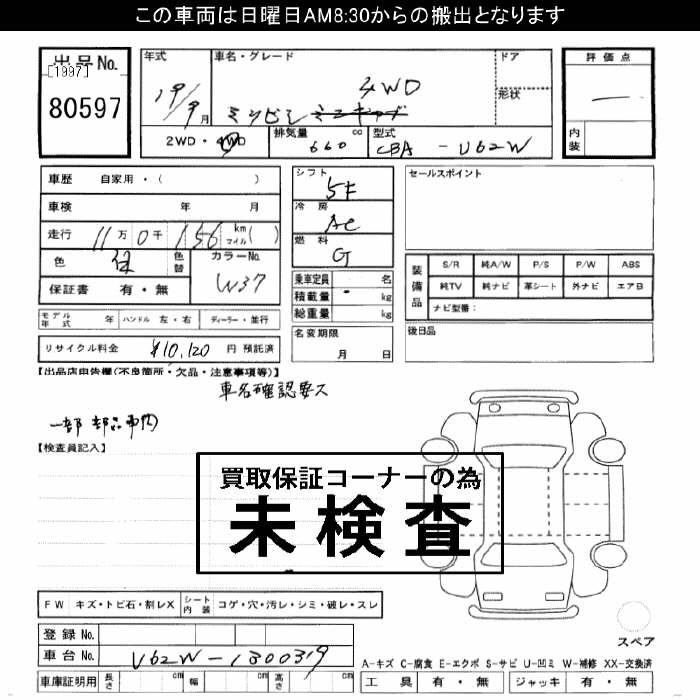 この車両は日曜日AM8:30からの搬出となります
出品No.
[1997]
80597
年式
19/9月
車名・グレード
4WD
ミツビシ ミニキャブ
ドア
形状
評価点
内装
2WD・4WD
排気量 660 cc
型式 CBA - U62W
車歴 自家用・( )
車検 年 月
走行 11万 0千 156 km マイル( )
色
色替
カラーNo. W37
保証書 有・無
モデル年式 年 ハンドル 左・右 ディーラー・並行
リサイクル料金 ¥10,120 円 預託済
シフト 5F
冷房 AC
燃料 G
乗車定員 名
積載量 - kg
総重量 kg
名変期限
月 日
セールスポイント
装備品
S/R 純A/W P/S P/W ABS
純TV 純ナビ 革シート 外ナビ エアB
ナビ型番:
後日品
【出品店申告欄(不良箇所・欠品・注意事項等)】
車名確認要ス
一部 部品車内
【検査員記入】
買取保証コーナーの為
未検査
FW キズ・トビ石・割レX シート内装 コゲ・穴・汚レ・シミ・破レ・スレ
登録No.
車台No. U62W-1300319
車庫証明用 長さ cm 幅 cm 高さ cm
スペア
A-キズ C-腐食 E-エクボ S-サビ U-凹ミ W-補修 XX-交換済
工具 有・無 ジャッキ 有・無